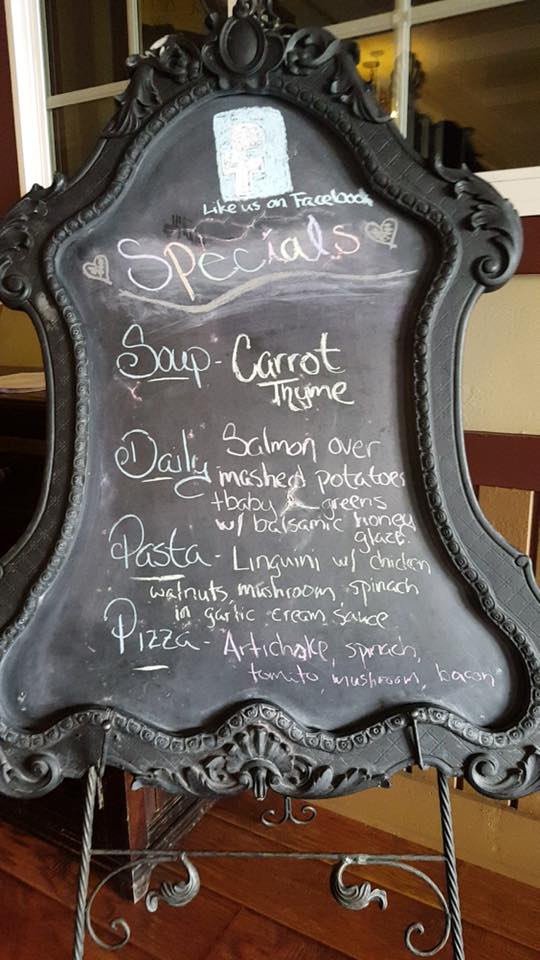 f
Like us on Facebook
Specials
Soup - Carrot
Thyme
Daily Salmon over
mashed potatoes
+ baby greens
w/ balsamic honey
glaze.
Pasta - Linguini w/ chicken
walnuts, mushroom, spinach
in garlic cream sauce
Pizza - Artichoke, spinach,
tomito, mushroom, bacon